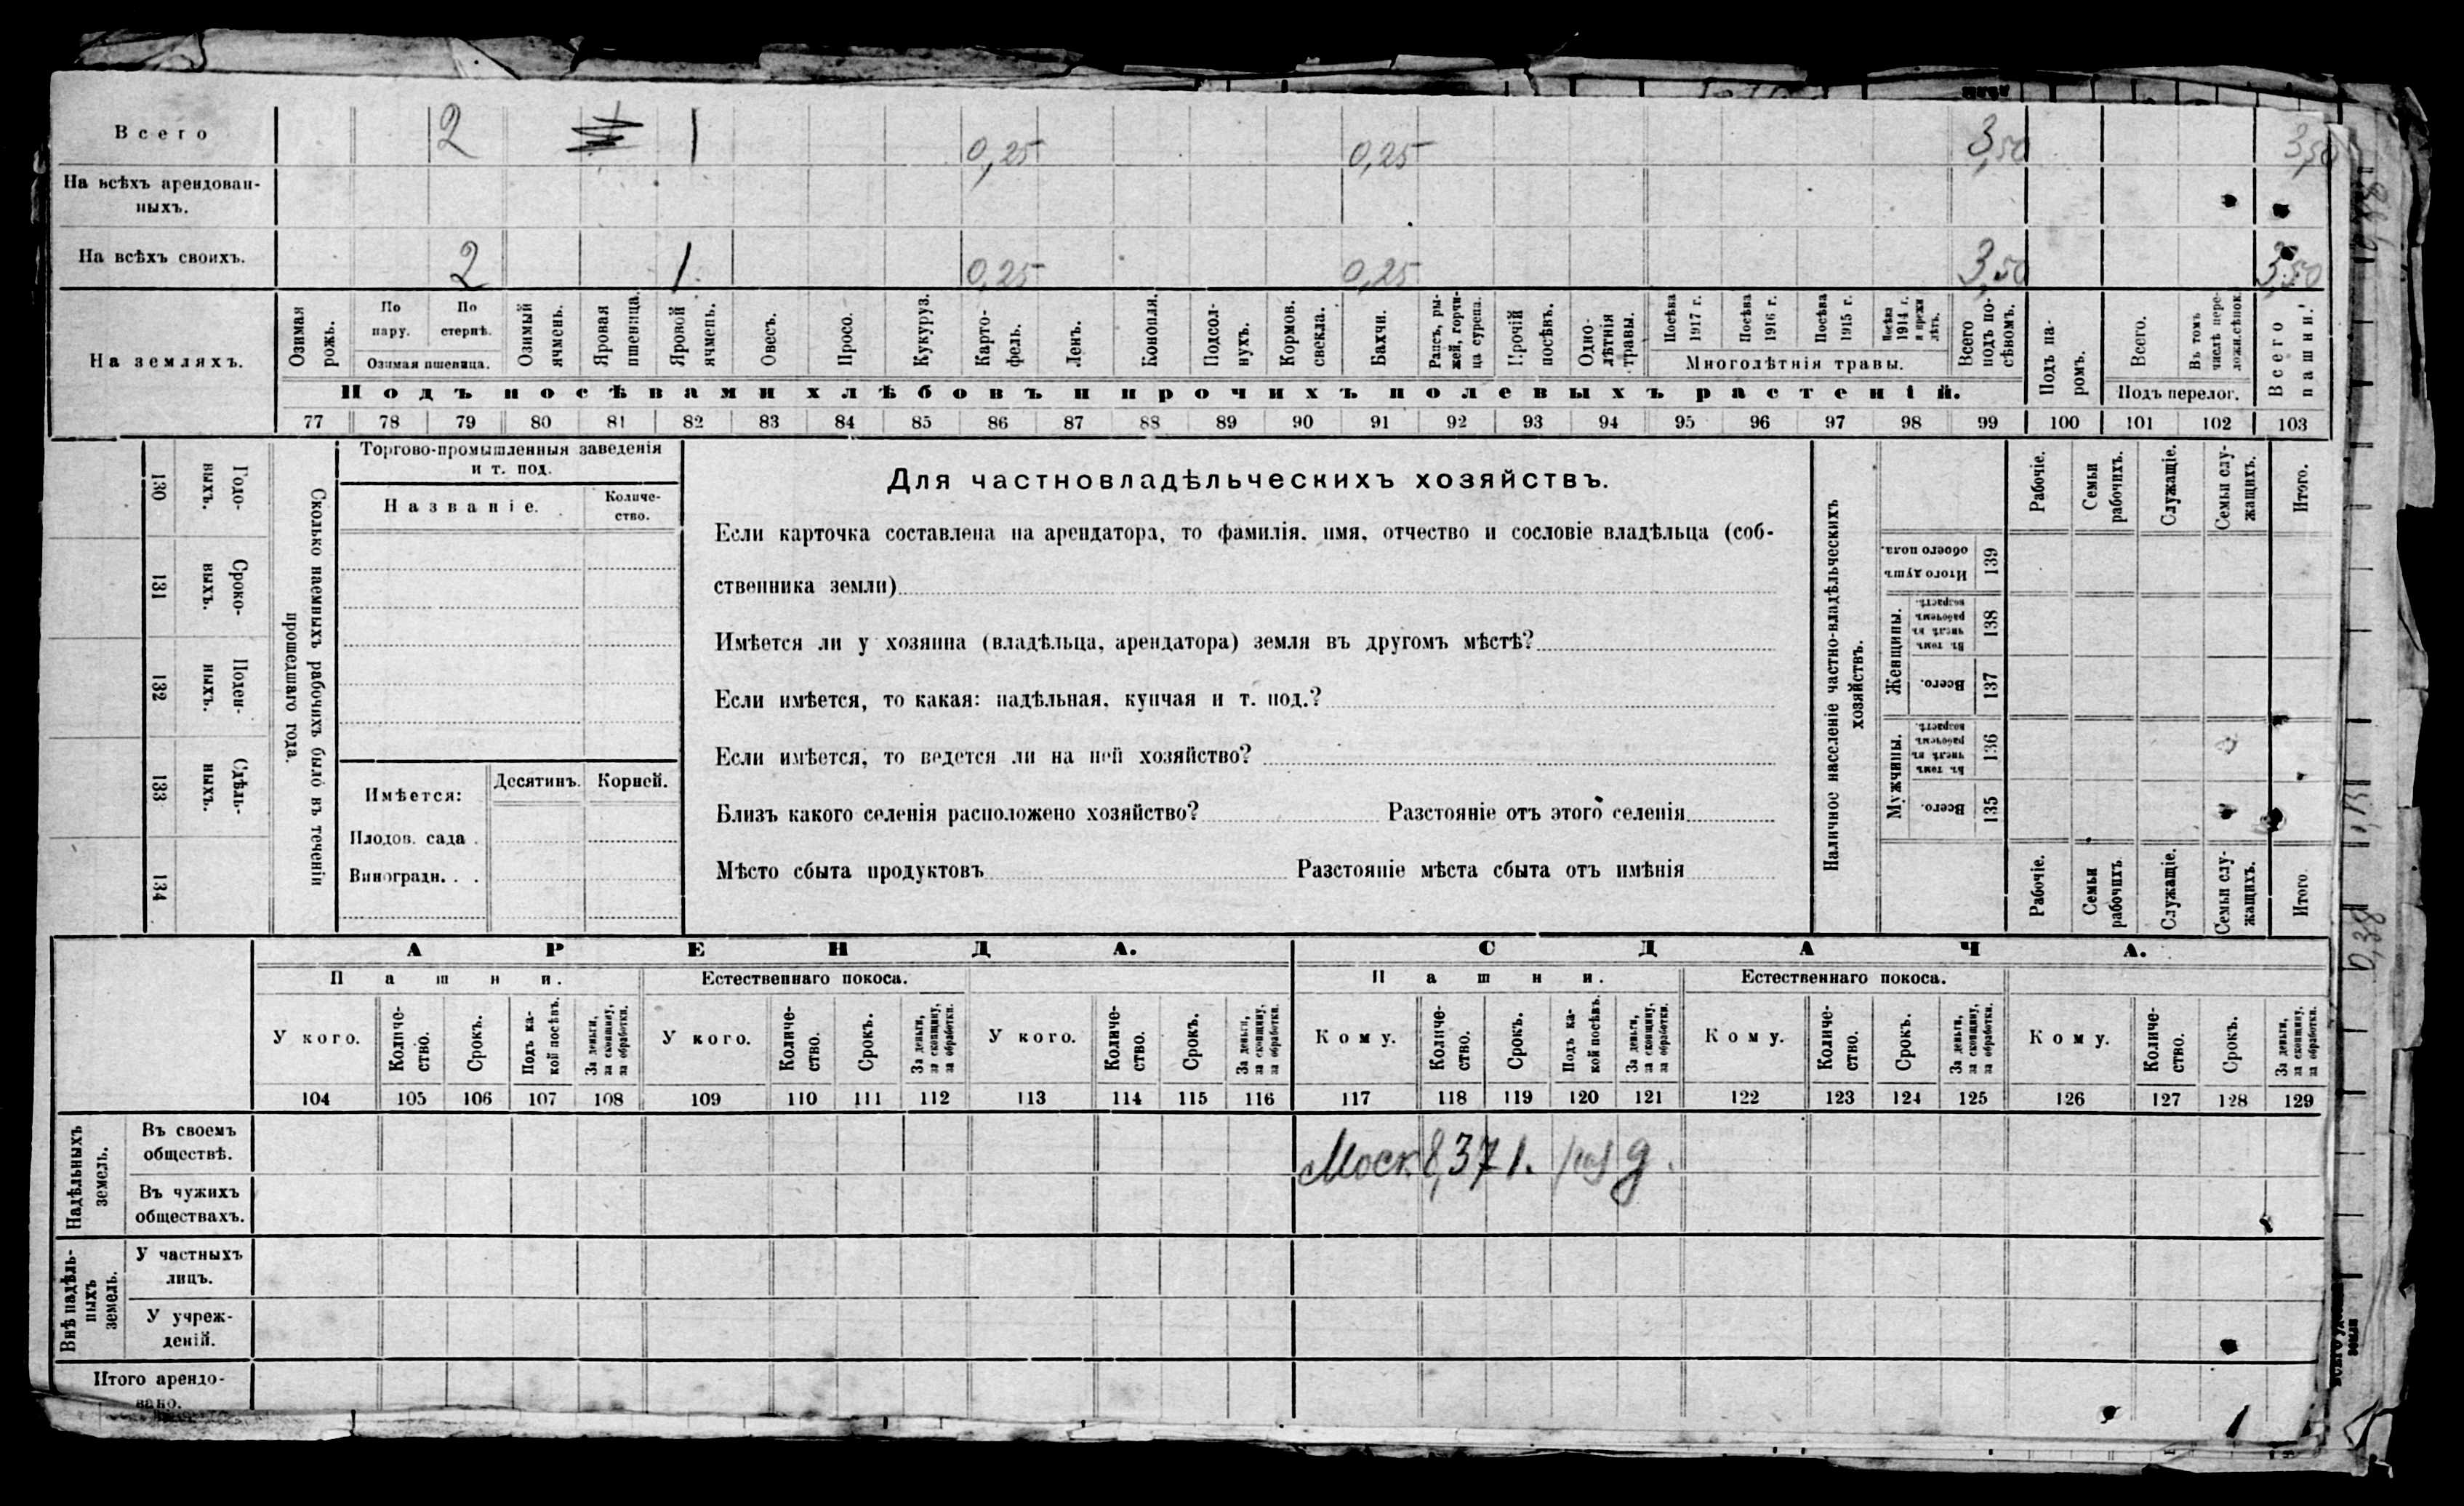 Всего 2 1 0,25 0,25 3,50 3,50
На всѣхъ арендован-
ныхъ.
На всѣхъ своихъ. 2 1 0,25 0,25 3,50 3,50
На земляхъ.
Озимая рожь.
По пару.
По стернѣ.
Озимая пшеница.
Озимый ячмень.
Яровая пшеница.
Яровой ячмень.
Овесъ.
Просо.
Кукуруз.
Карто-
фель.
Ленъ.
Конопля.
Подсол-
нухъ.
Кормов. свекла.
Бахчи.
Рапсъ, ры-
жей, горчи-
ца сурепа.
Прочій посѣвъ.
Одно-
лѣтнія травы.
Посѣва 1917 г.
Посѣва 1916 г.
Посѣва 1915 г.
Посѣва 1914 г. и прежн лѣтъ.
Многолѣтнія травы.
Всего подъ по-
сѣвомъ.
Подъ посѣвами хлѣбовъ и прочихъ полевыхъ растеній.
Подъ па-
ромъ.
Всего.
Въ томъ числѣ пере-
ложн.сѣнок.
Подъ перелог.
Всего пашни.
77 78 79 80 81 82 83 84 85 86 87 88 89 90 91 92 93 94 95 96 97 98 99 100 101 102 103
130 Годо-
выхъ.
131 Сроко-
выхъ.
132 Поден-
ныхъ.
133 Сдѣль-
ныхъ.
134
Сколько наемныхъ рабочихъ было въ теченіи
прошедшаго года.
Торгово-промышленныя заведенія
и т. под.
Названіе.
Количе-
ство.
Имѣется:
Десятинъ. Корней.
Плодов. сада .
Виноградн. . .
Для частновладѣльческихъ хозяйствъ.
Если карточка составлена на арендатора, то фамилія, имя, отчество и сословіе владѣльца (соб-
ственника земли)
Имѣется ли у хозяина (владѣльца, арендатора) земля въ другомъ мѣстѣ?
Если имѣется, то какая: надѣльная, купчая и т. под.?
Если имѣется, то ведется ли на ней хозяйство?
Близъ какого селенія расположено хозяйство? Разстояніе отъ этого селенія
Мѣсто сбыта продуктовъ Разстояніе мѣста сбыта отъ имѣнія
Наличное населеніе частно-владѣльческихъ
хозяйствъ.
Рабочіе.
Семьи рабочихъ.
Служащіе.
Семьи слу-
жащихъ.
Итого.
Итого душ обоего пола. 139
Женщины.
Въ томъ числѣ въ рабочемъ возрастѣ. 138
Всего. 137
Мужчины.
Въ томъ числѣ въ рабочемъ возрастѣ. 136
Всего. 135
Рабочіе.
Семьи рабочихъ
Служащіе.
Семьи слу-
жащихъ.
Итого.
АРЕНДА. СДАЧА.
Пашни. Естественнаго покоса. Пашни. Естественнаго покоса.
У кого.
Количе-
ство.
Срокъ.
Подъ ка-
кой посѣвъ.
За деньги,
за скопщину,
за обработки.
У кого.
Количе-
ство.
Срокъ.
За деньги,
за скопщину,
за обработки.
У кого.
Количе-
ство.
Срокъ.
За деньги,
за скопщину,
за обработки.
Кому.
Количе-
ство.
Срокъ.
Подъ ка-
кой посѣвъ.
За деньги,
за скопщину,
за обработки.
Кому.
Количе-
ство.
Срокъ.
За деньги,
за скопщину,
за обработки.
Кому.
Количе-
ство.
Срокъ.
За деньги,
за скопщину,
за обработки.
104 105 106 107 108 109 110 111 112 113 114 115 116 117 118 119 120 121 122 123 124 125 126 127 128 129
Надѣльныхъ
земель.
Въ своемъ
обществѣ.
Моск 8,37 1. д.
Въ чужихъ
обществахъ.
Внѣ надѣль-
ныхъ
земель.
У частныхъ
лицъ.
У учреж-
деній.
Итого арендо-
вано.